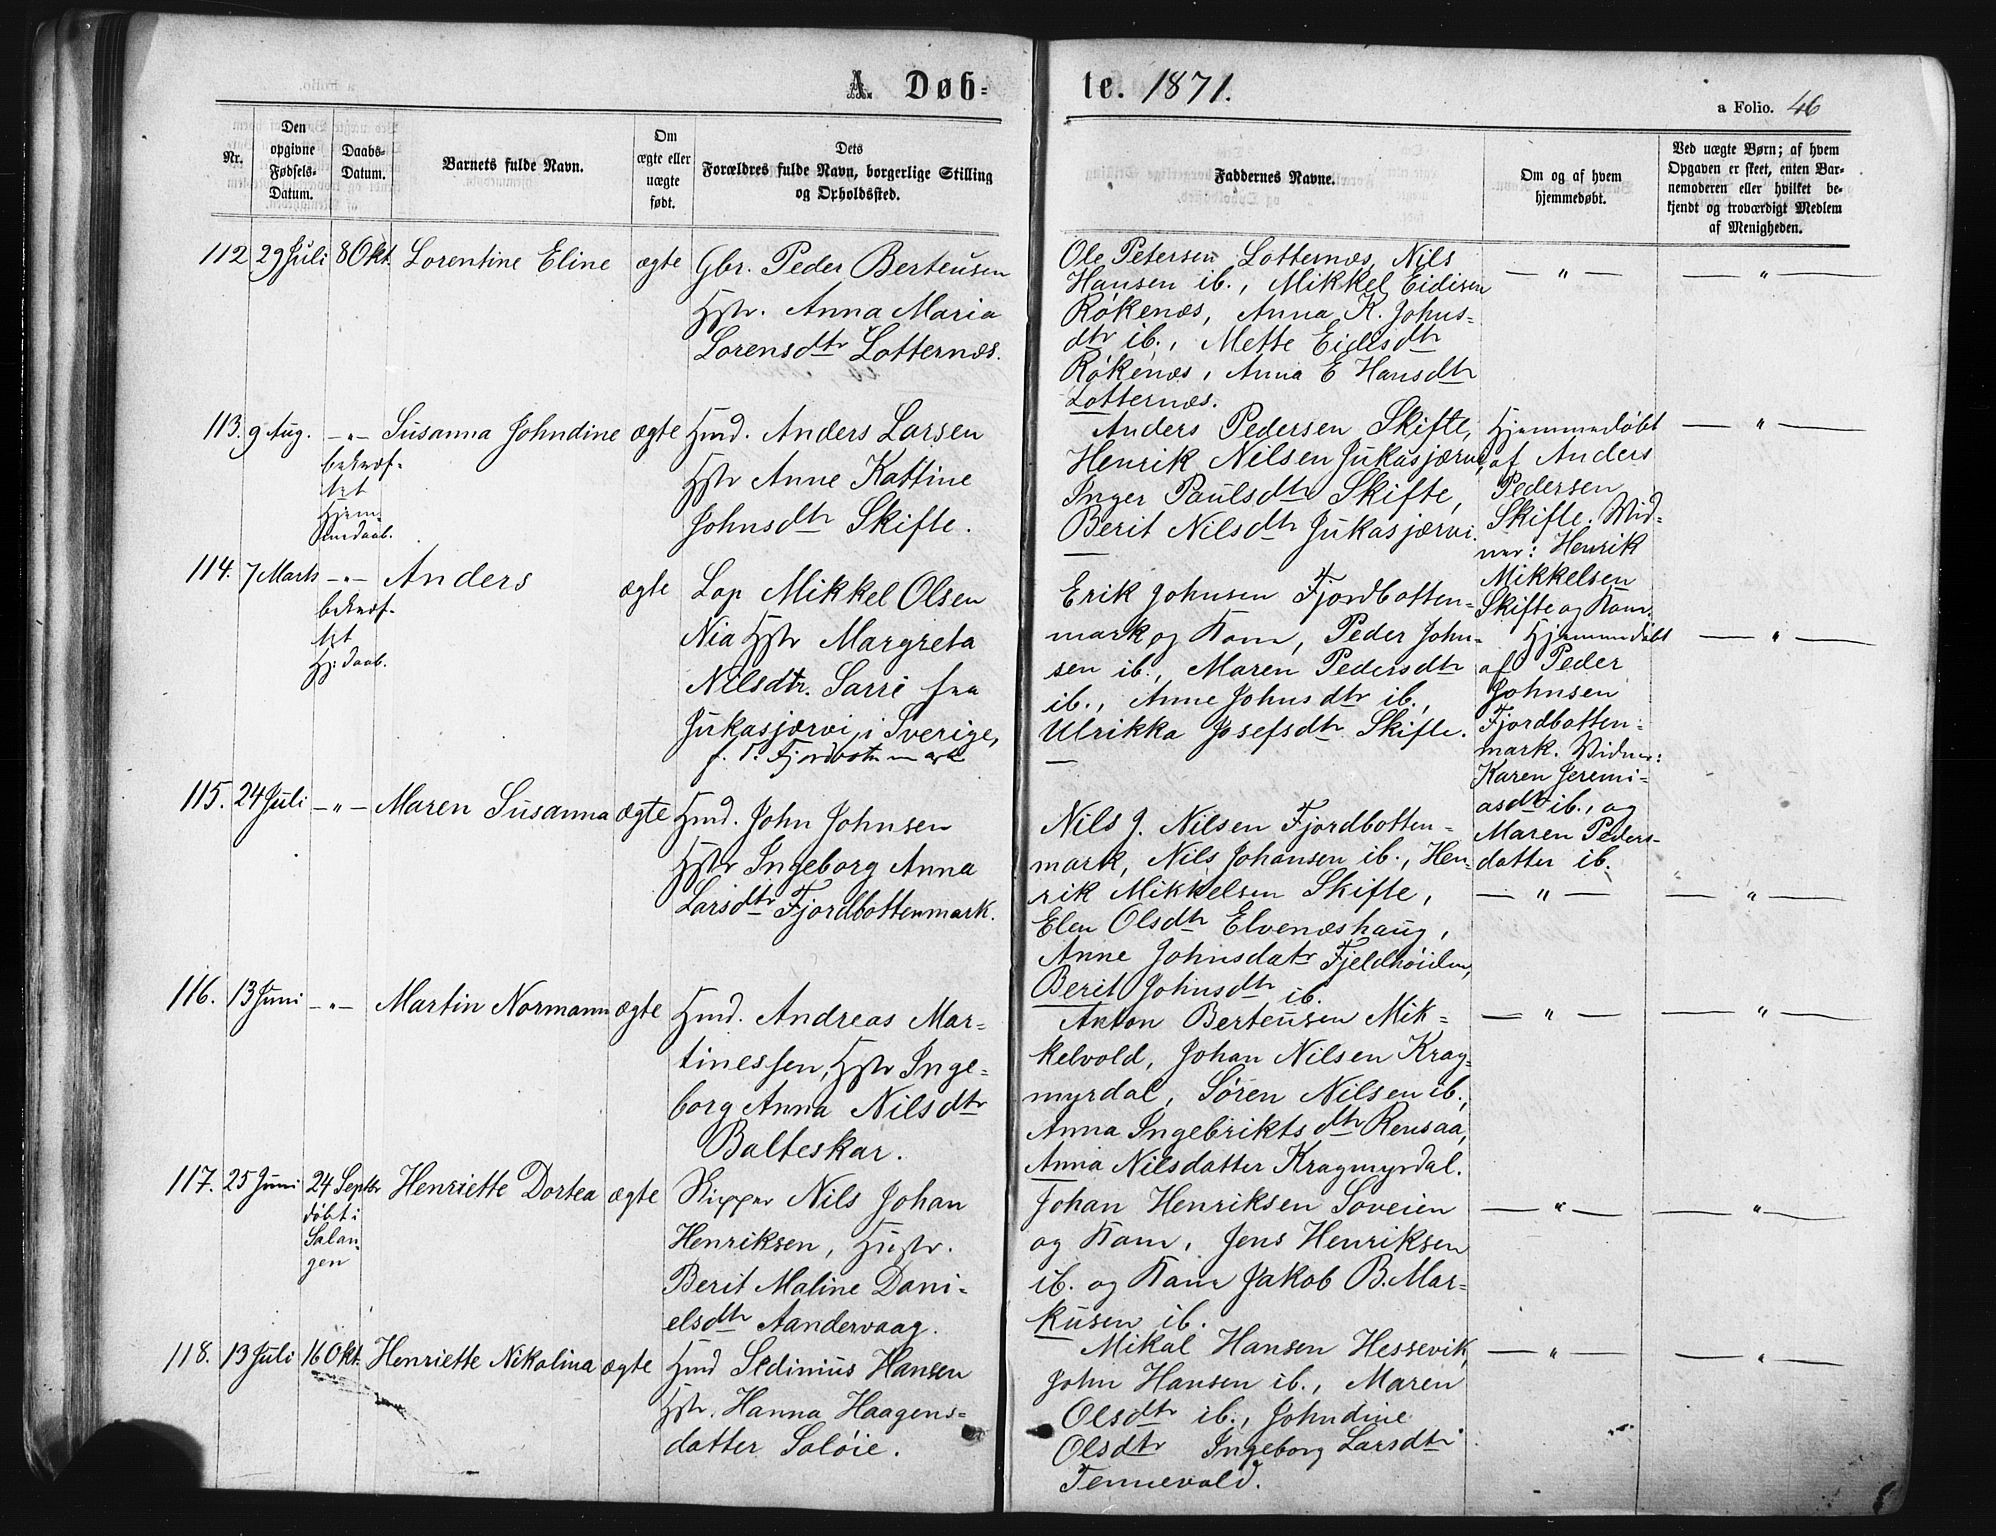 A. Døb-
te. 1871.
a Folio. 46
Nr.
Den opgivne Fødsels-Datum.
Daabs-Datum.
Barnets fulde Navn.
Om ægte eller uægte født.
Dets Forældres fulde Navn, borgerlige Stilling og Opholdssted.
Faddernes Navne.
Om og af hvem hjemmedøbt.
Ved uægte Børn; af hvem Opgaven er skeet, enten Barnemoderen eller hvilket bekjendt og troværdigt Medlem af Menigheden.
112 29 Juli 8 Okt. Lorentine Eline ægte Gbr. Peder Berteüsen
Hstr. Anna Maria
Lorensdtr Lotternæs.
Ole Petersen Lotternæs, Nils
Hansen ib., Mikkel Eidisen
Røkenæs, Anna K. Johns-
dtr ib., Mette Eidisdtr
Røkenæs, Anna E Hansdtr
Lotternæs.
— " — — " —
113. 9 Aug. — " — Susanna Johndine ægte Hmd. Anders Larsen
bekræf-
tet
Hjem-
medaab.
Hstr Anne Kattine
Johnsdtr Skifte.
Anders Pedersen Skifte,
Henrik Nilsen Jukasjærvi,
Inger Paulsdtr Skifte,
Berit Nilsdtr Jukasjærvi.
Hjemmedøbt
af Anders
Pedersen
Skifte. Vid-
ner: Henrik
Mikkelsen
Skifte og Kone.
— " —
114. 7 Marts — " — Anders ægte Lap Mikkel Olsen
bekræf-
tet
Hj: daab.
Nia Hstr Margreta
Nilsdtr. Sarri fra
Jukasjærvi i Sverige,
f. T. Fjordbotnmark
Erik Johnsen Fjordbotten-
mark og Kone, Peder John-
sen ib., Maren Pedersdtr
ib., Anne Johnsdtr ib.,
Ulrikka Josefsdtr Skifte.
Hjemmedøbt
af Peder
Johnsen
Fjordbotten-
mark. Vidner:
Karen Jeremi-
asdtr ib., og
Maren Peders-
datter ib.
— " —
115. 24 Juli — " — Maren Susanna ægte Hmd. John Johnsen
Hstr Ingeborg Anna
Larsdtr Fjordbottenmark.
Nils J. Nilsen Fjordbotten-
mark, Nils Johansen ib., Hen-
rik Mikkelsen Skifte,
Elen Olsdtr Elvenæshaug,
Anne Johnsdatr Fjeldhøiden,
Berit Johnsdtr ib.
— " — — " —
116. 13 Juni — " — Martin Normann ægte Hmd. Andreas Mar-
tinessen, Hstr Inge-
borg Anna Nilsdtr
Balteskar.
Anton Berteüsen Mik-
kelvold, Johan Nilsen Krag-
myrdal, Søren Nilsen ib.,
Anna Ingebriktsdtr Rensaa,
Anna Nilsdatter Kragmyrdal.
— " — — " —
117. 25 Juni 24 Septbr Henriette Dortea ægte Skipper Nils Johan
døbt i
Salan-
gen
Henriksen, Hustr.
Berit Maline Dani-
elsdtr Aandervaag.
Johan Henriksen Soveien
og Kone, Jens Henriksen
ib. og Kone Jakob B. Mar-
kusen ib.
— " — — " —
118. 13 Juli 16 Okt. Henriette Nikolina ægte Hmd Sedinius Hansen
Hstr. Hanna Haagens-
datter Soløie.
Mikal Hansen Hessevik,
John Hansen ib., Maren
Olsdtr ib., Johndine
Olsdtr Ingeborg Larsdtr
Tennevold.
— " — — " —